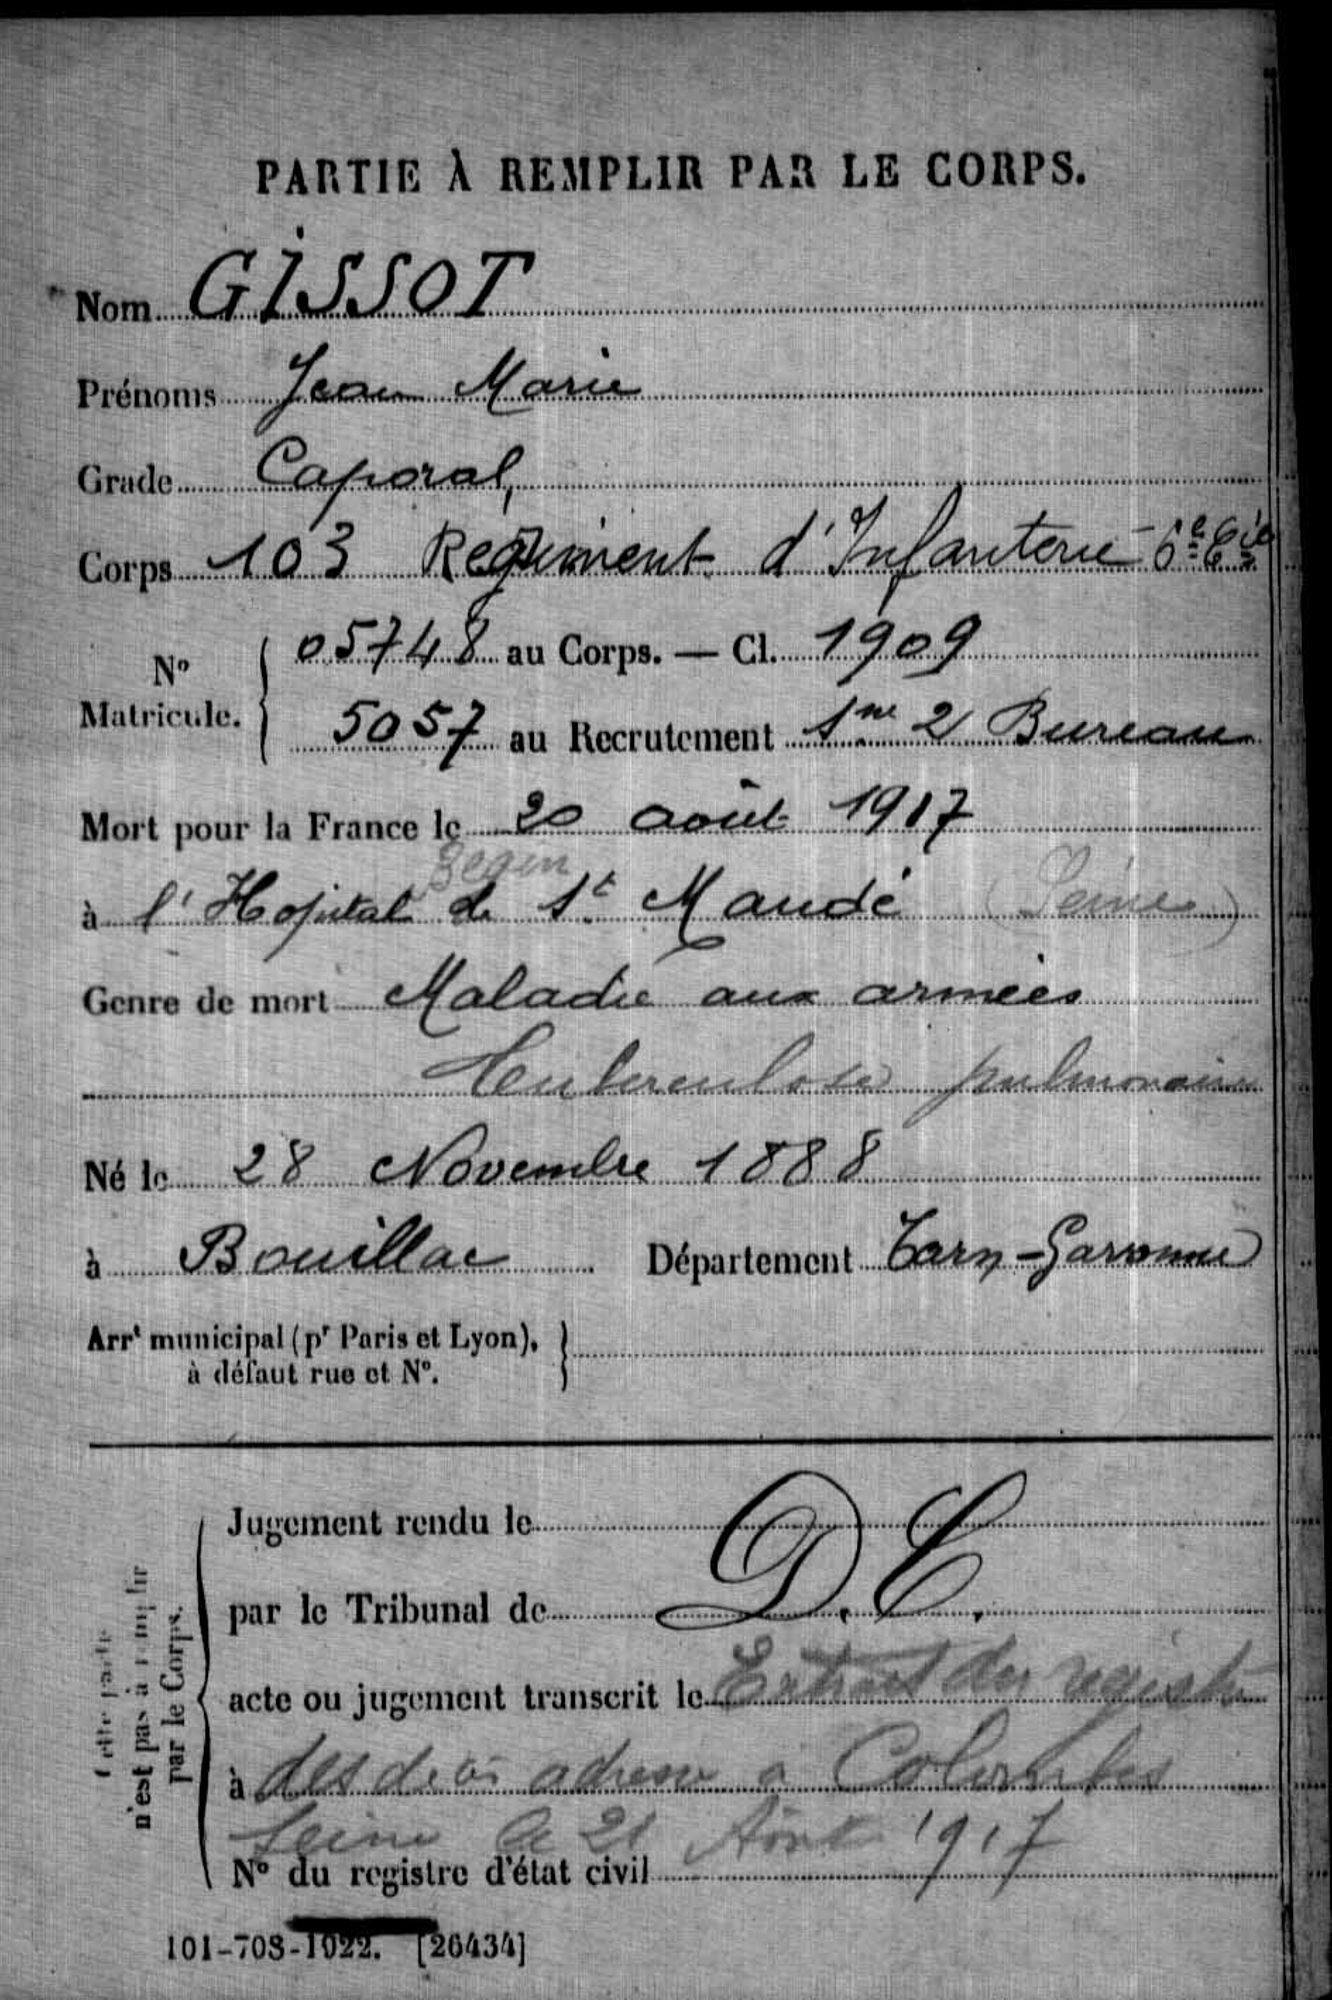 PARTIE À REMPLIR PAR LE CORPS.
Nom GISSOT
Prénoms Jean Marie
Grade Caporal,
Corps 103 Régiment d'Infanterie - 6e Cie
No Matricule. 05748 au Corps. — Cl. 1909
5057 au Recrutement Sne 2 Bureau
Mort pour la France le 20 août 1917
Begin
à l'Hopital de St Mandé (Seine)
Genre de mort Maladie aux armées
Tuberculose pulmonaire
Né le 28 Novembre 1888
à Bouillac Département Tarn-Garonne
Arrt municipal (pr Paris et Lyon),
à défaut rue et No.
Cette partie
n'est pas à remplir
par le Corps.
Jugement rendu le
par le Tribunal de D.C.
acte ou jugement transcrit le Extrait du registre
à des décès adressé à Colombes
Seine le 21 Août 1917
No du registre d'état civil
101-708-1922. [26434]